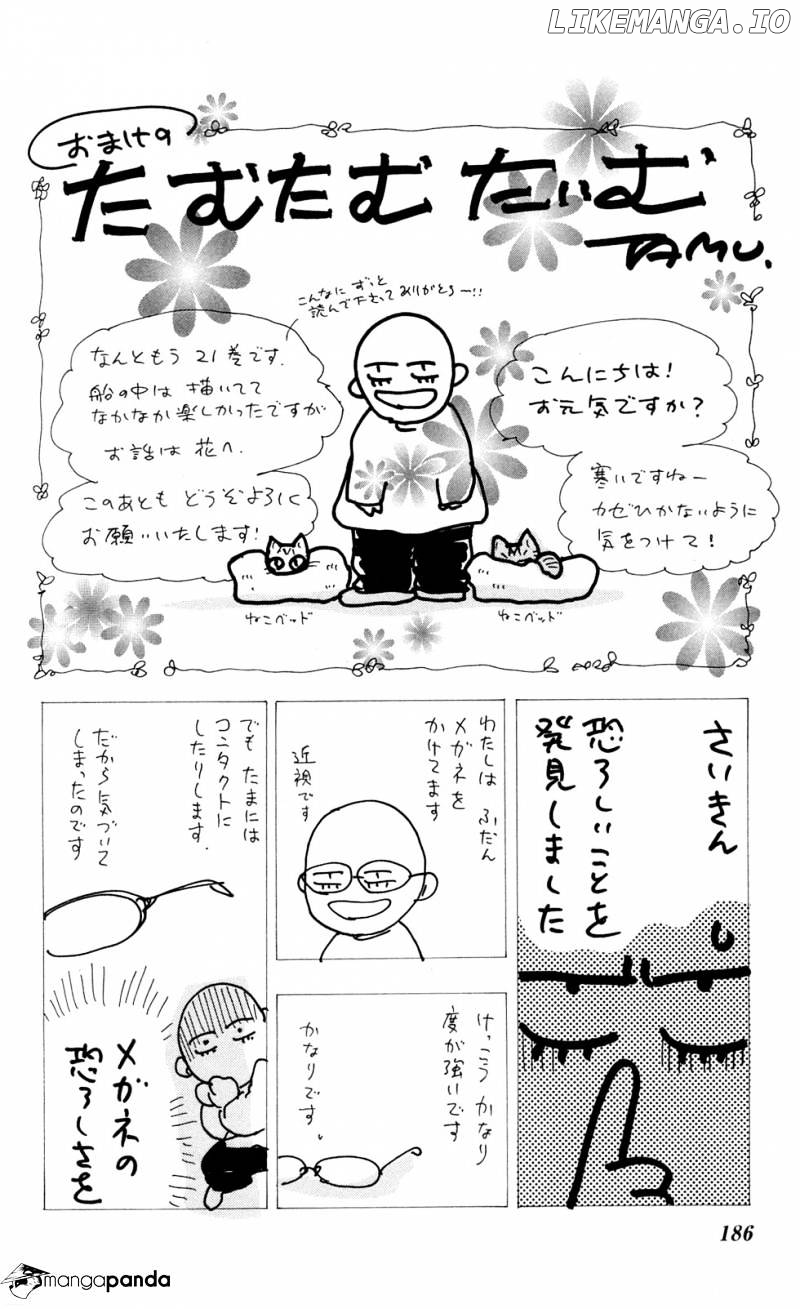 LIKEMANGA.IO
おまけの
たむたむ たいむ
TAMU.
こんにちは!
お元気ですか?
寒いですねー
カゼひかないように
気をつけて!
こんなに ずっと
読んで下さって ありがとうー!!
なんともう 21巻です.
船の中は 描いてて
なかなか楽しかったですが
お話は 花へ.
このあとも どうぞよろしく
お願いいたします!
ねこベッド
ねこベッド
さいきん
恐ろしいことを
発見しました
わたしは ふだん
メガネを
かけてます
近視です
けっこう かなり
度が強いです
かなりです。
でも たまには
コンタクトに
したりします.
だから気づいて
しまったのです
メガネの
恐ろしさを
186
mangapanda